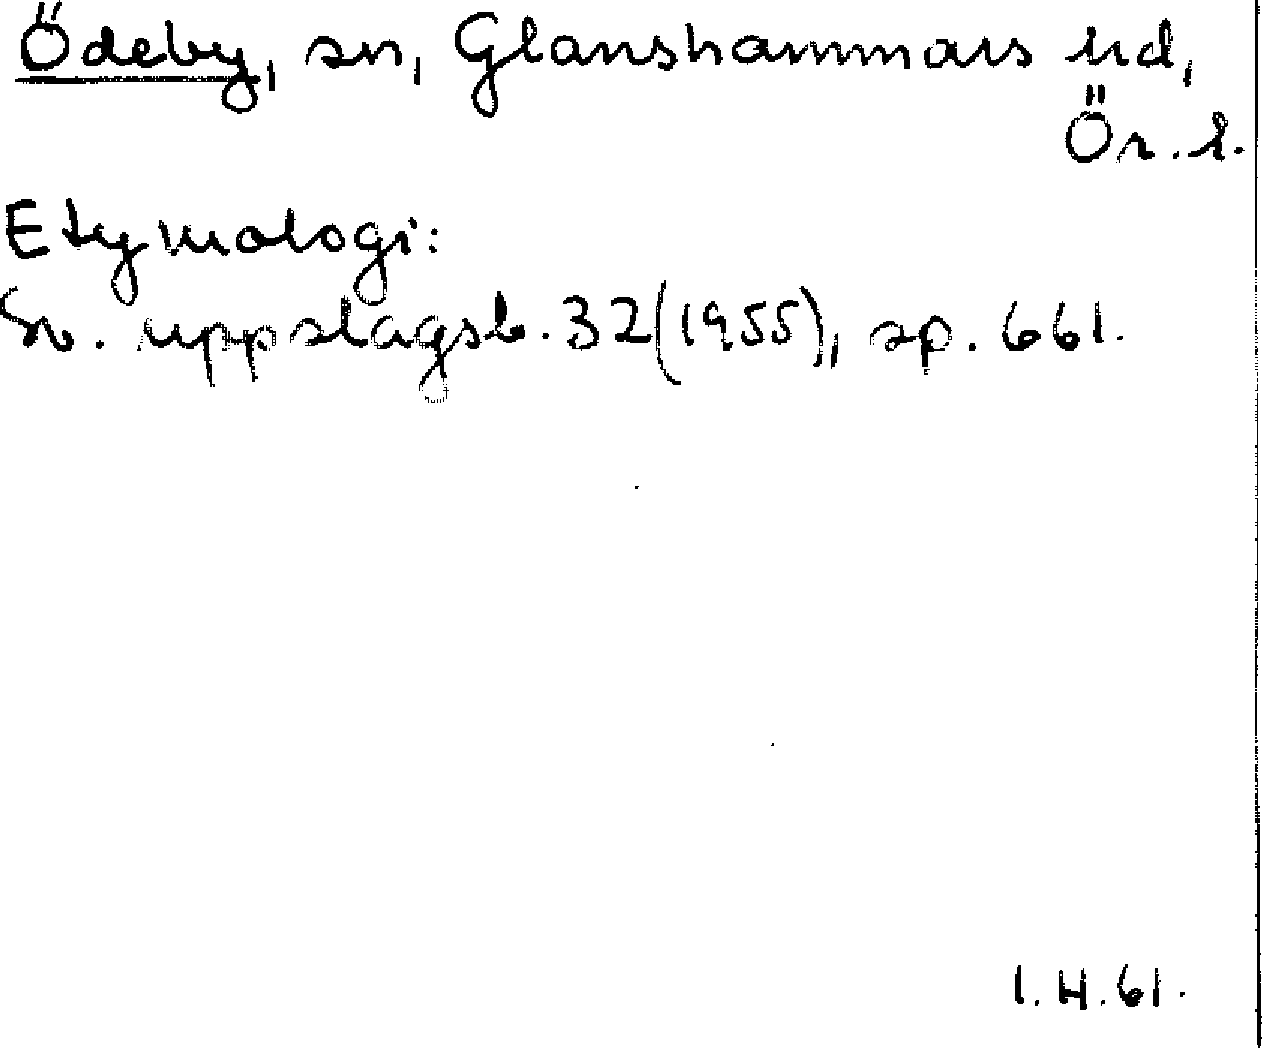 Ödeby, sn, Glanshammars hd,
Ör. l.
Etymologi:
Sv. uppslagsb. 32 (1955), sp. 661.
I. H. 61.